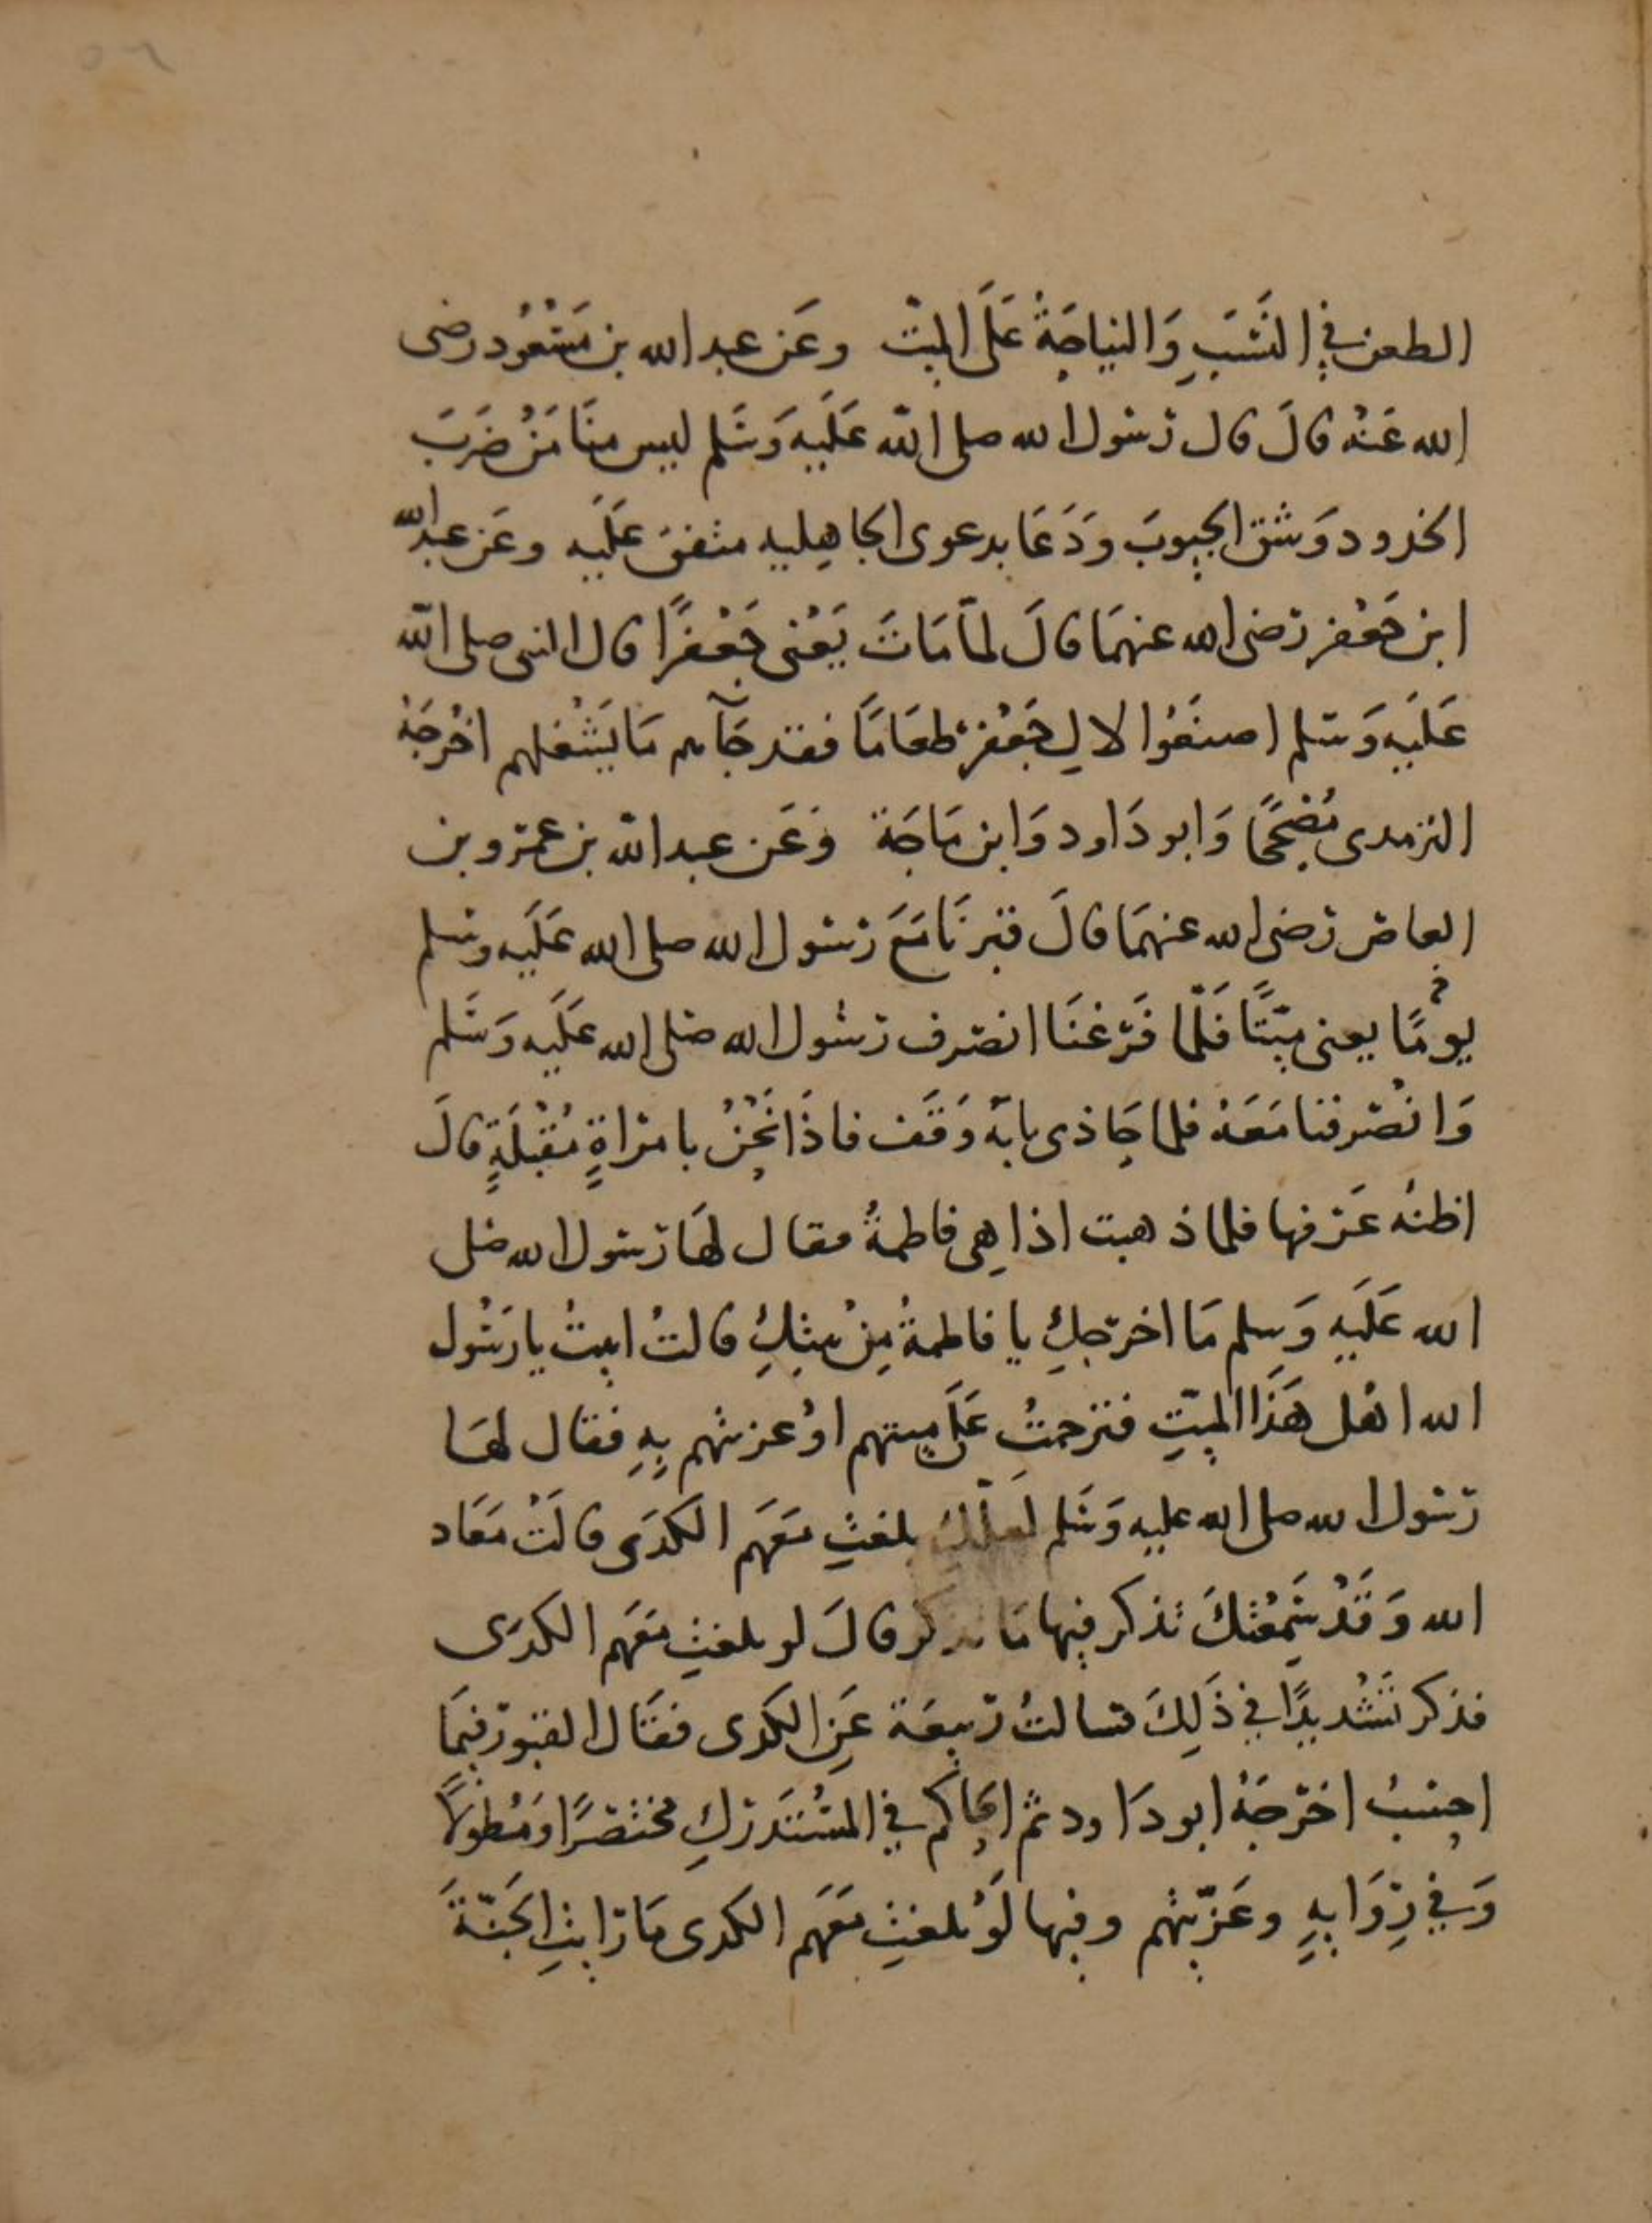 الطعن في النَسَبِ وَالنياحَةُ عَلَى الميّت وعَن عبد الله بن مَسْعُود رضى
الله عَنْه قالَ قال رَسُول الله صلى الله عَلَيهِ وَسَلم ليس منَا مَنْ ضَرَبَ
الخدود وَشق الجيوبَ وَدَعَا بدعوى الجاهِليه متفق عَلَيه وعَن عبد الله
ابن جَعْفر رَضى الله عنهمَا قالَ لمَّا مَاتَ يَعْنى جَعْفرًا قال النبى صلى الله
عَلَيهِ وَسَلم اصنَعُوا لالِ جَعْفر طعَامًا فقد جَآهم مَا يَشْغلهم اخْرجَهُ
الترمدى مُصَححًا وَابو دَاود وَابن مَاجَة وَعَن عبد الله بن عمرو بن
العاص رَضى الله عنهمَا قالَ قبرنَا مَعَ رَسُول الله صلى الله عَلَيه وسلم
يومًا يعنى ميّتًا فَلَمّا فَرَغنَا انصَرف رَسُول الله صَلى الله عَلَيه وَسَلم
وَانْصَرفنا مَعَهُ فلما حَاذى بابَه وَقَف فاذَا نَحْنُ بامرَاةٍ مُقْبلَةٍ قالَ
اظنه عَرَفها فلما ذهبت اذا هِى فاطمةُ فقال لهَا رَسُول الله صَلى
الله عَلَيهِ وَسلم مَا اخرَجكِ يا فاطمةُ مِنْ بيتِكِ قالتُ اتيتُ يا رَسُول
الله اهْل هَذَا الميّتِ فترحمتُ عَلَى ميتهم اوْ عزيتهم بِهِ فقال لهَا
رَسُول الله صلى الله عليه وَسَلم لَعَلّك بلغتِ مَعَهَم الكدَى قالَتْ مَعَاد
الله وَقَدْ سَمِعْتكَ تذكر فيها مَا تذكر قالَ لو بلغتِ مَعَهَم الكدَى
فذكر تَشْديدًا في ذَلِكَ فسالتُ رَبيعَة عَنِ الكدَى فقَال القبور فيمَا
احسبُ اخرَجَهُ ابو دَاود ثم الحاكم في المسْتَدرَكِ مختصَرًا وَمُطولًا
وَفي رِوَايةٍ وعَزّيتهم وفيها لَوْ بلغتِ مَعَهَم الكدى مَا رَايتِ الجَنّةَ